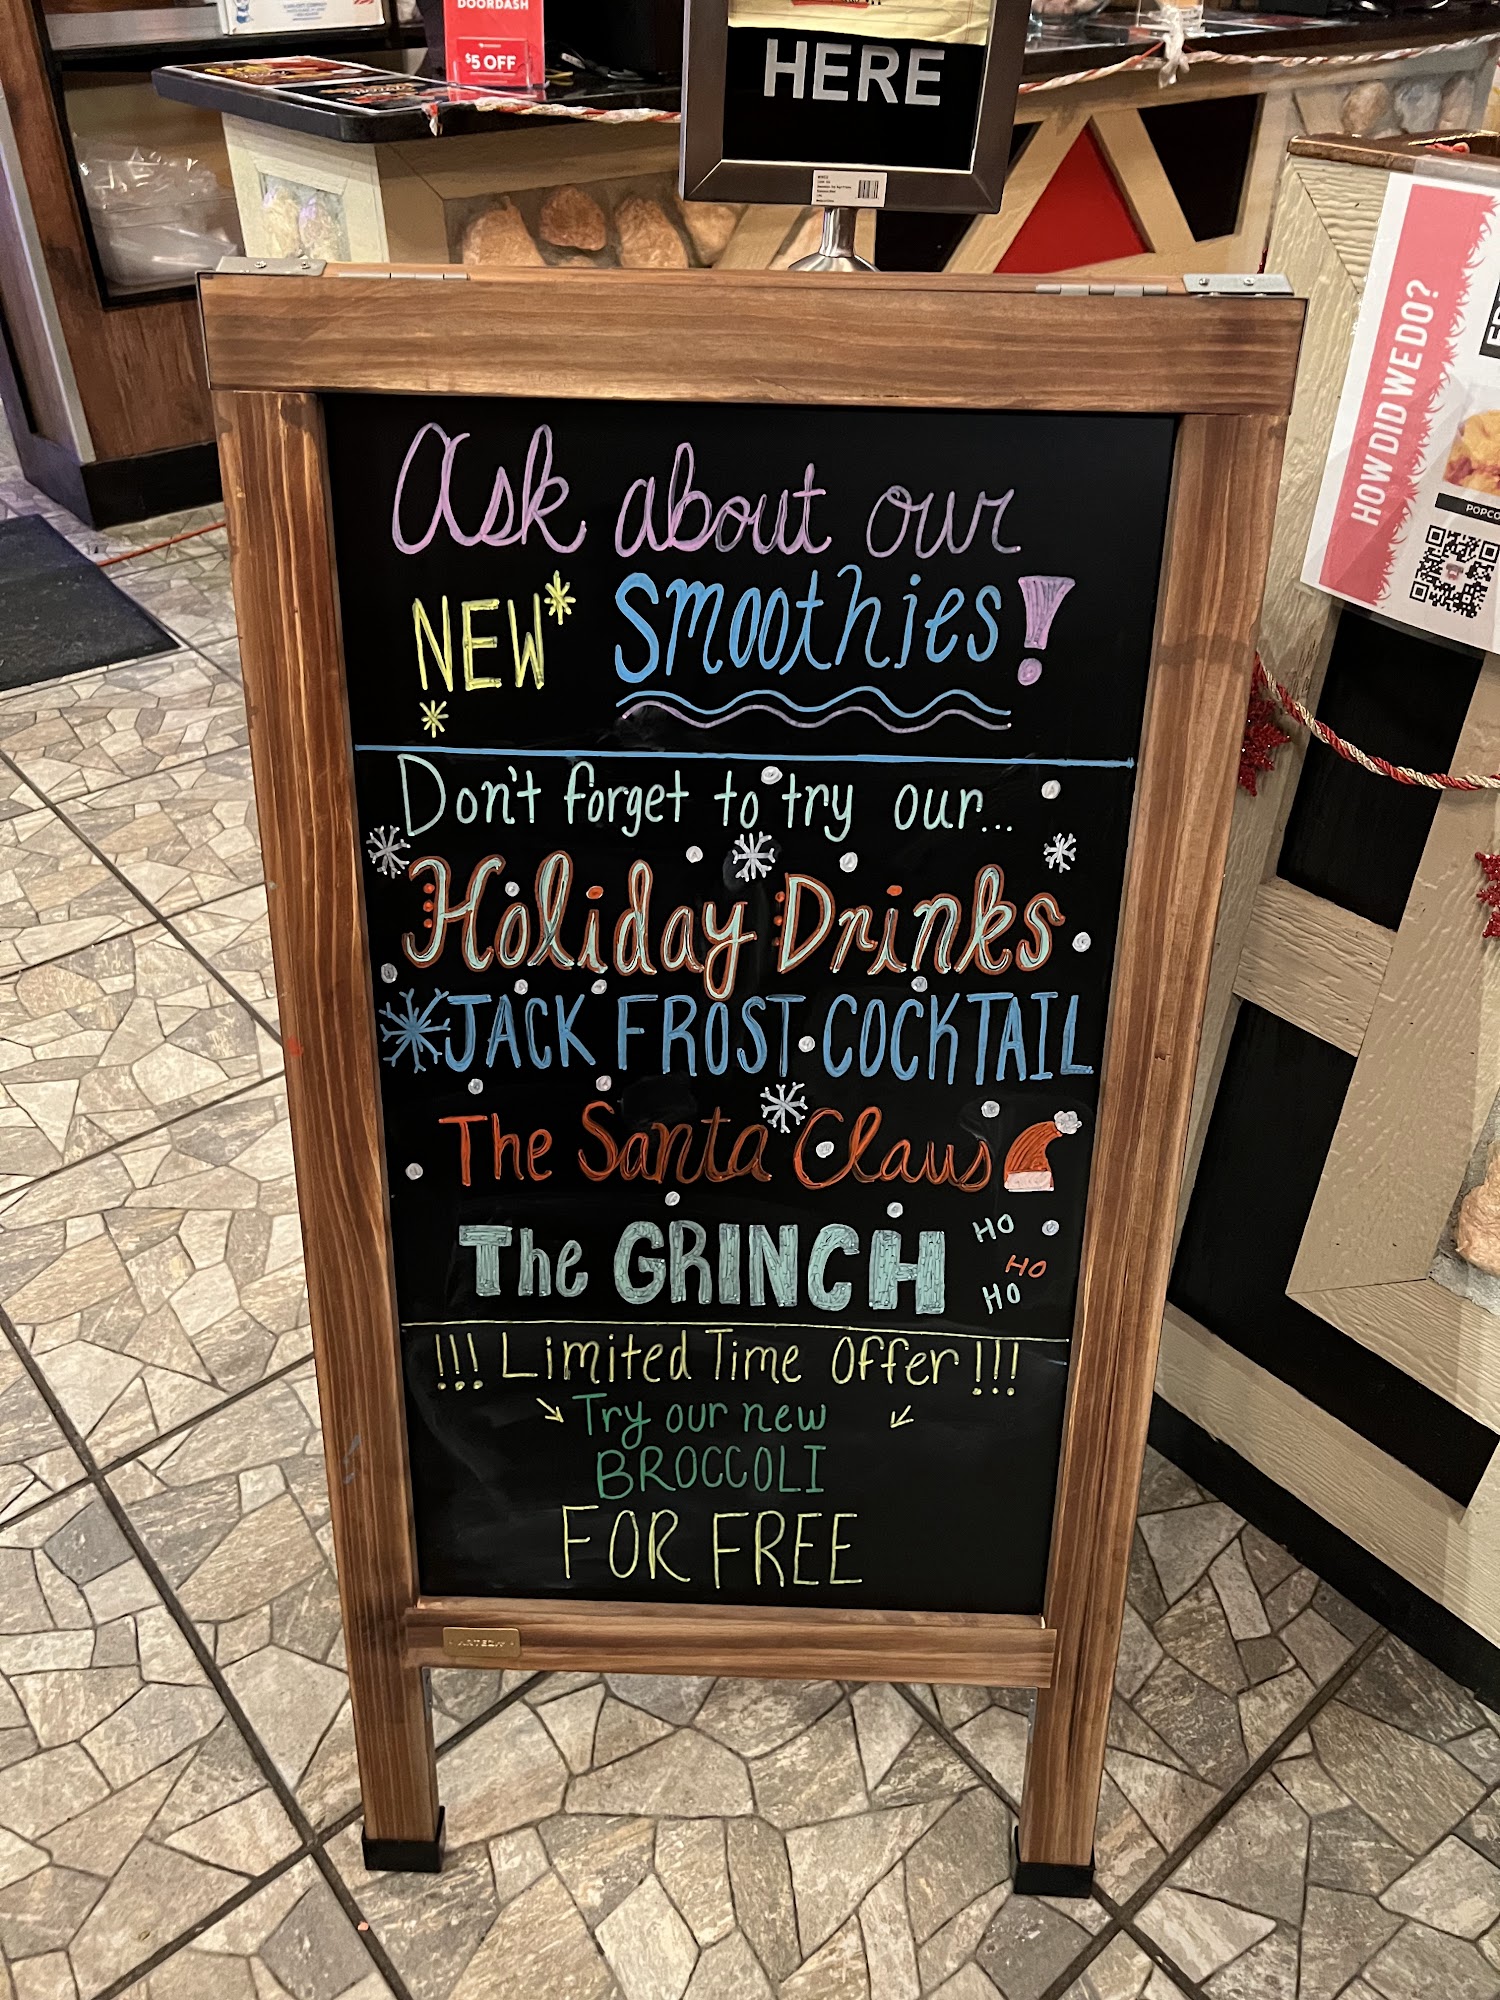 DOORDASH
$5 OFF
HERE
HOW DID WE DO?
POPCO
Ask about our
NEW* Smoothies!
Don't forget to try our...
Holiday Drinks
JACK FROST COCKTAIL
The Santa Claus
The GRINCH
HO
HO
HO
!!! Limited Time Offer !!!
Try our new
BROCCOLI
FOR FREE